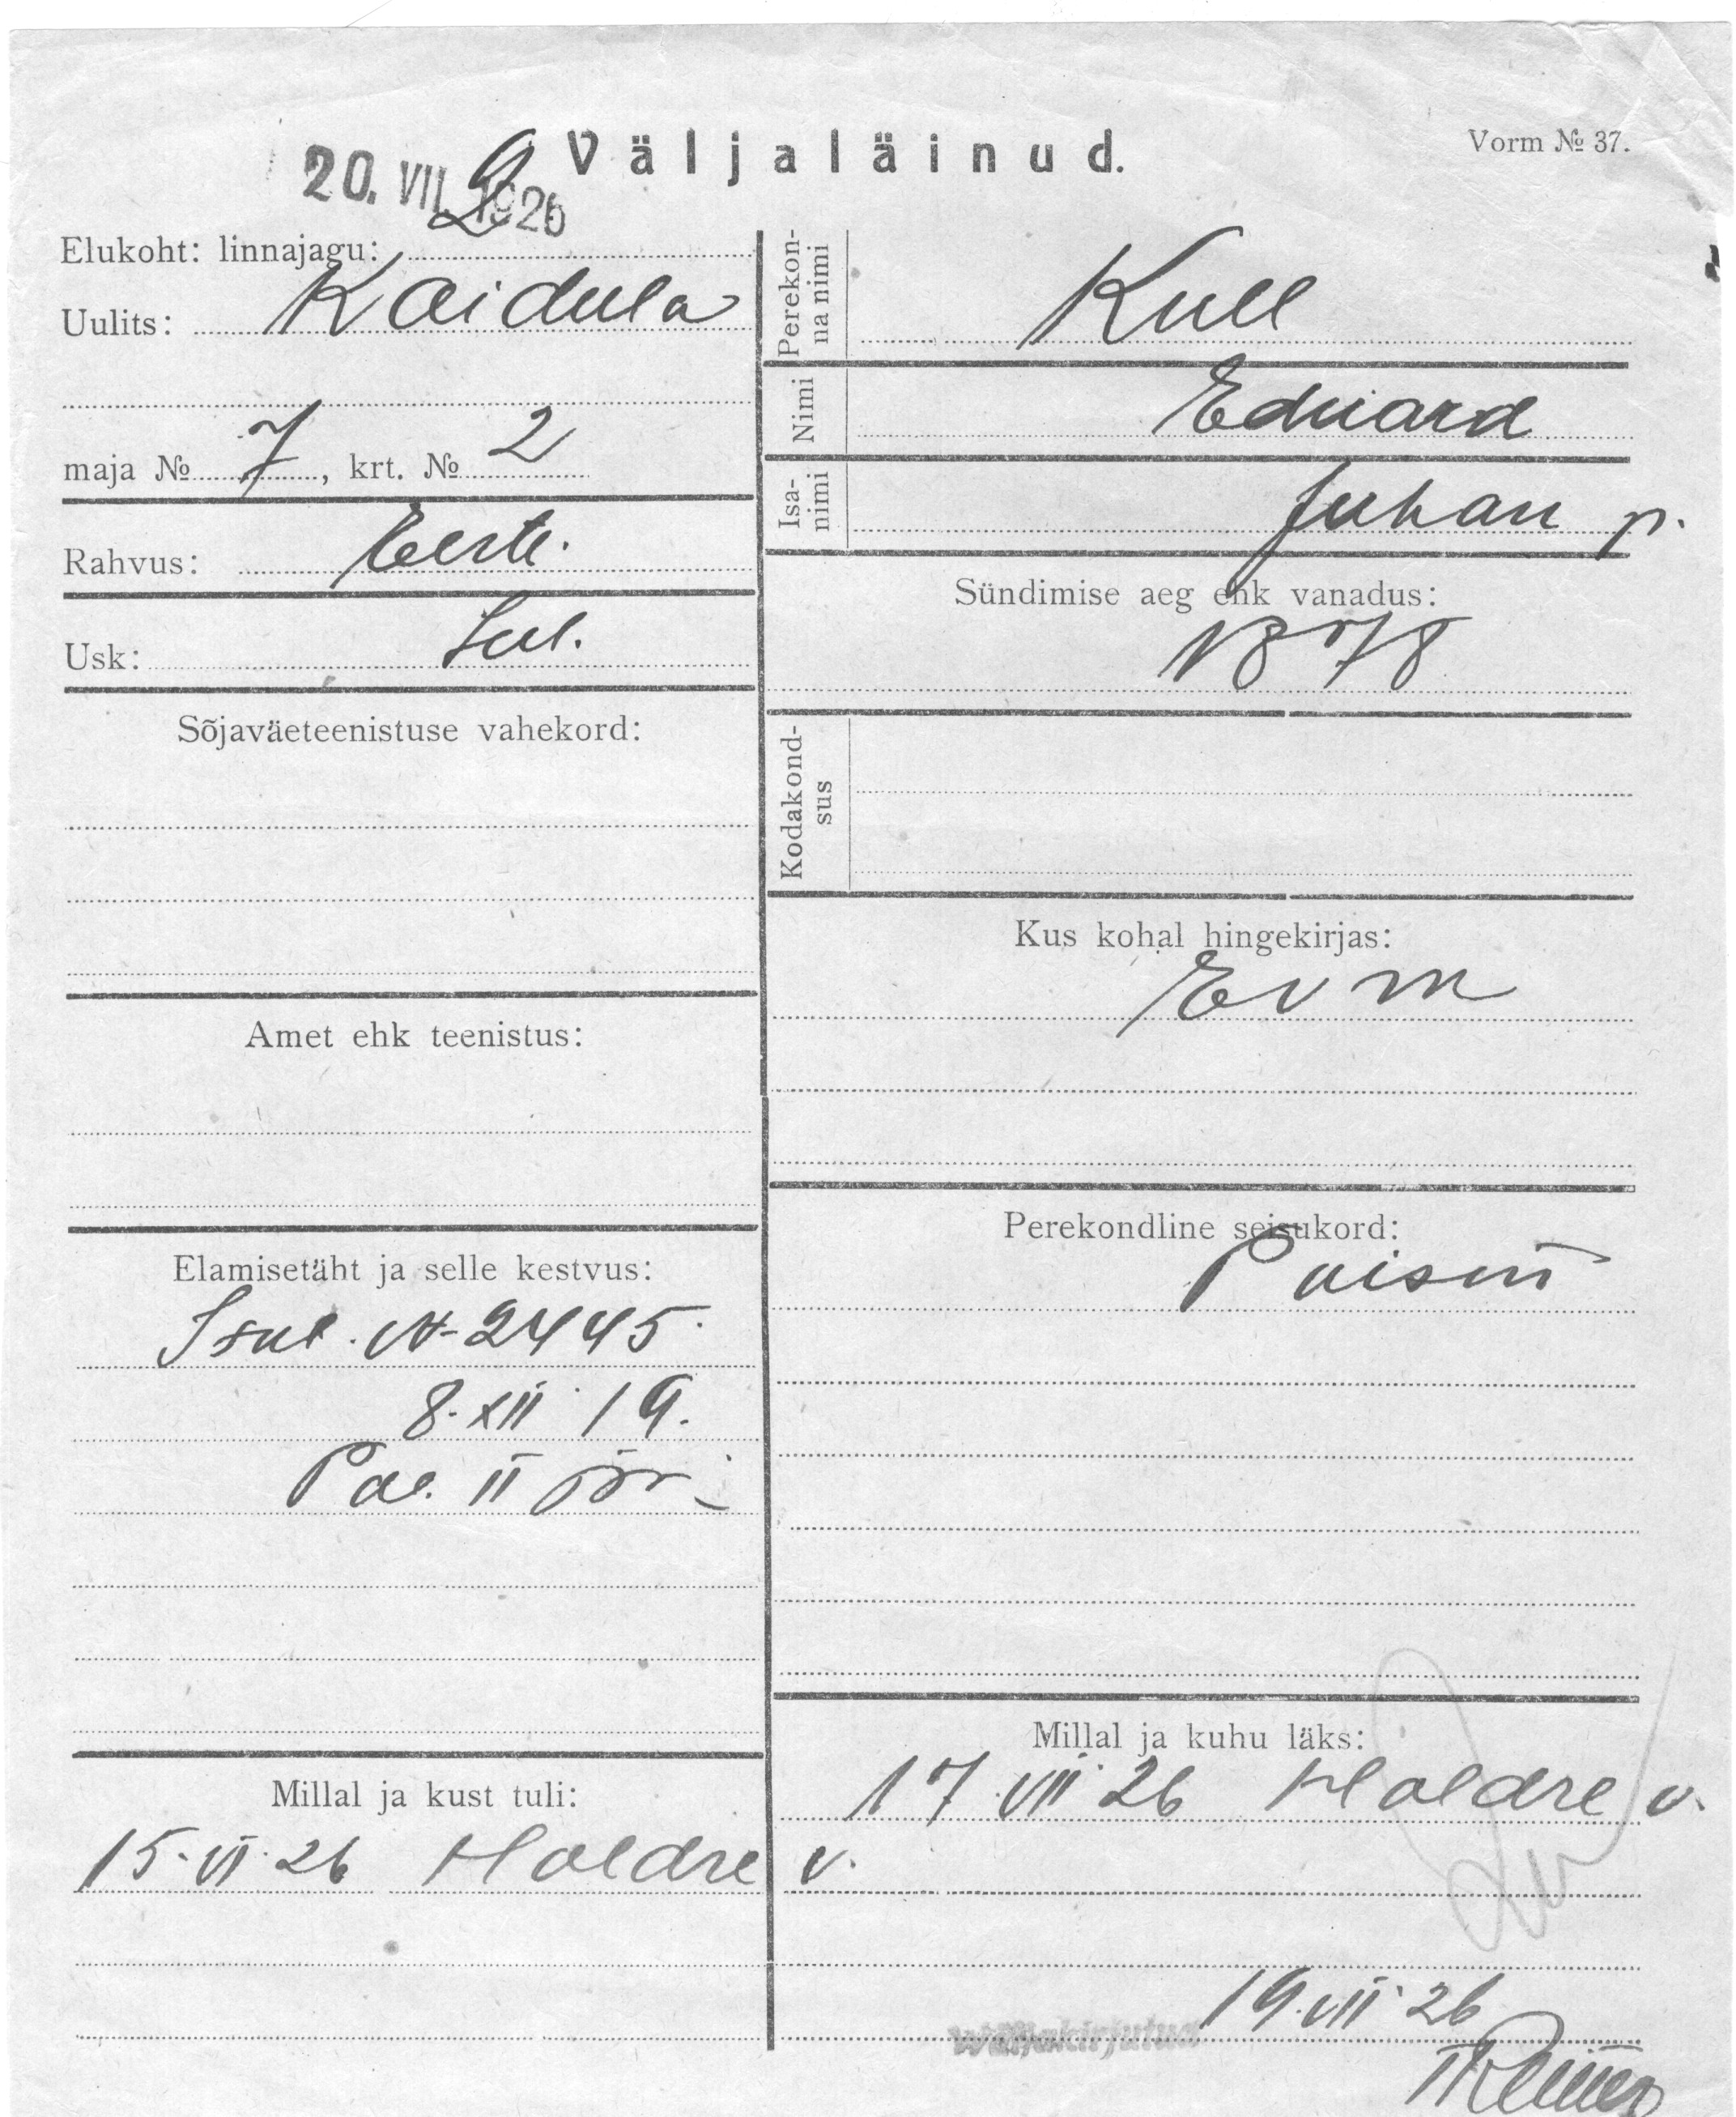 Väljaläinud.
Vorm № 37.
20. VII 1926
2
Elukoht: linnajagu:
Uulits: Koidula
maja № 7, krt. № 2
Rahvus: Eesti.
Usk: Lut.
Sõjaväeteenistuse vahekord:
Amet ehk teenistus:
Elamisetäht ja selle kestvus:
Isut. N-2445.
8. XII 19.
Pol. II jör.
Millal ja kust tuli:
15. VI. 26 Holdre v.
Perekon-
na nimi
Kull
Nimi
Eduard
Isa-
nimi
Juhan p.
Sündimise aeg ehk vanadus:
1878
Kodakond-
sus
Kus kohal hingekirjas:
E v m
Perekondline seisukord:
Millal ja kuhu läks:
17 VII 26 Holdre v.
19. VII 26
Väljakirjutud